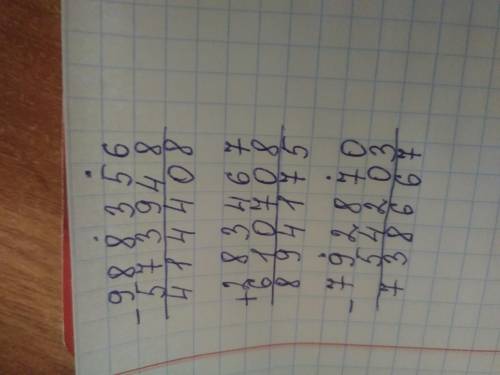 - 988356
573948
414408
+ 283467
610708
894175
- 792870
54203
738667